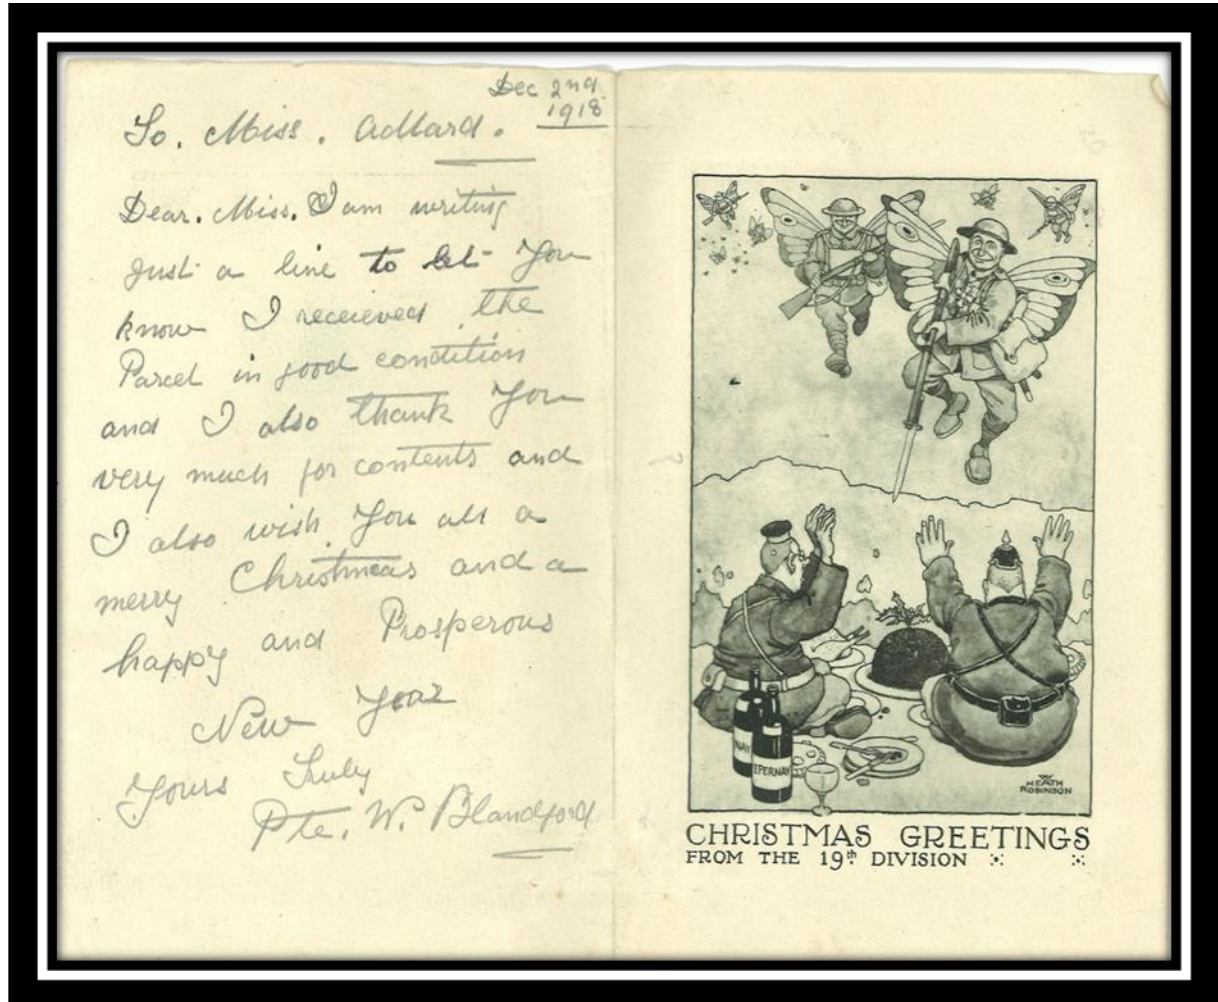 Dec 2nd
1918
To. Miss. Adlard.
Dear. Miss. I am writing
Just a line to let You
know I receieved the
Parcel in good condition
and I also thank You
very much for contents and
I also wish You all a
merry Christmas and a
happy and Prosperous
New Year
Yours Truly
Pte. W. Blandford
NAY
EPERNAY
W
HEATH
ROBINSON
CHRISTMAS GREETINGS
FROM THE 19th DIVISION